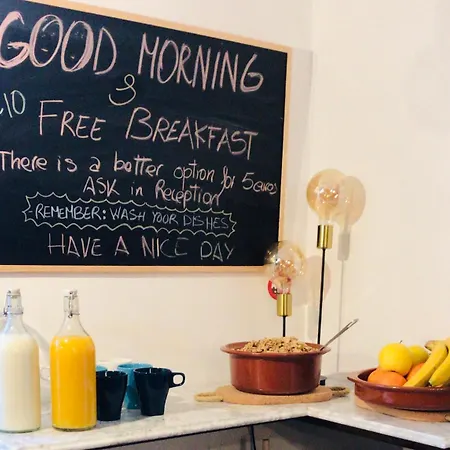 GOOD MORNING
&
FREE BREAKFAST
There is a better option for 5 euros
ASK in Reception
REMEMBER: WASH YOUR DISHES
HAVE A NICE DAY